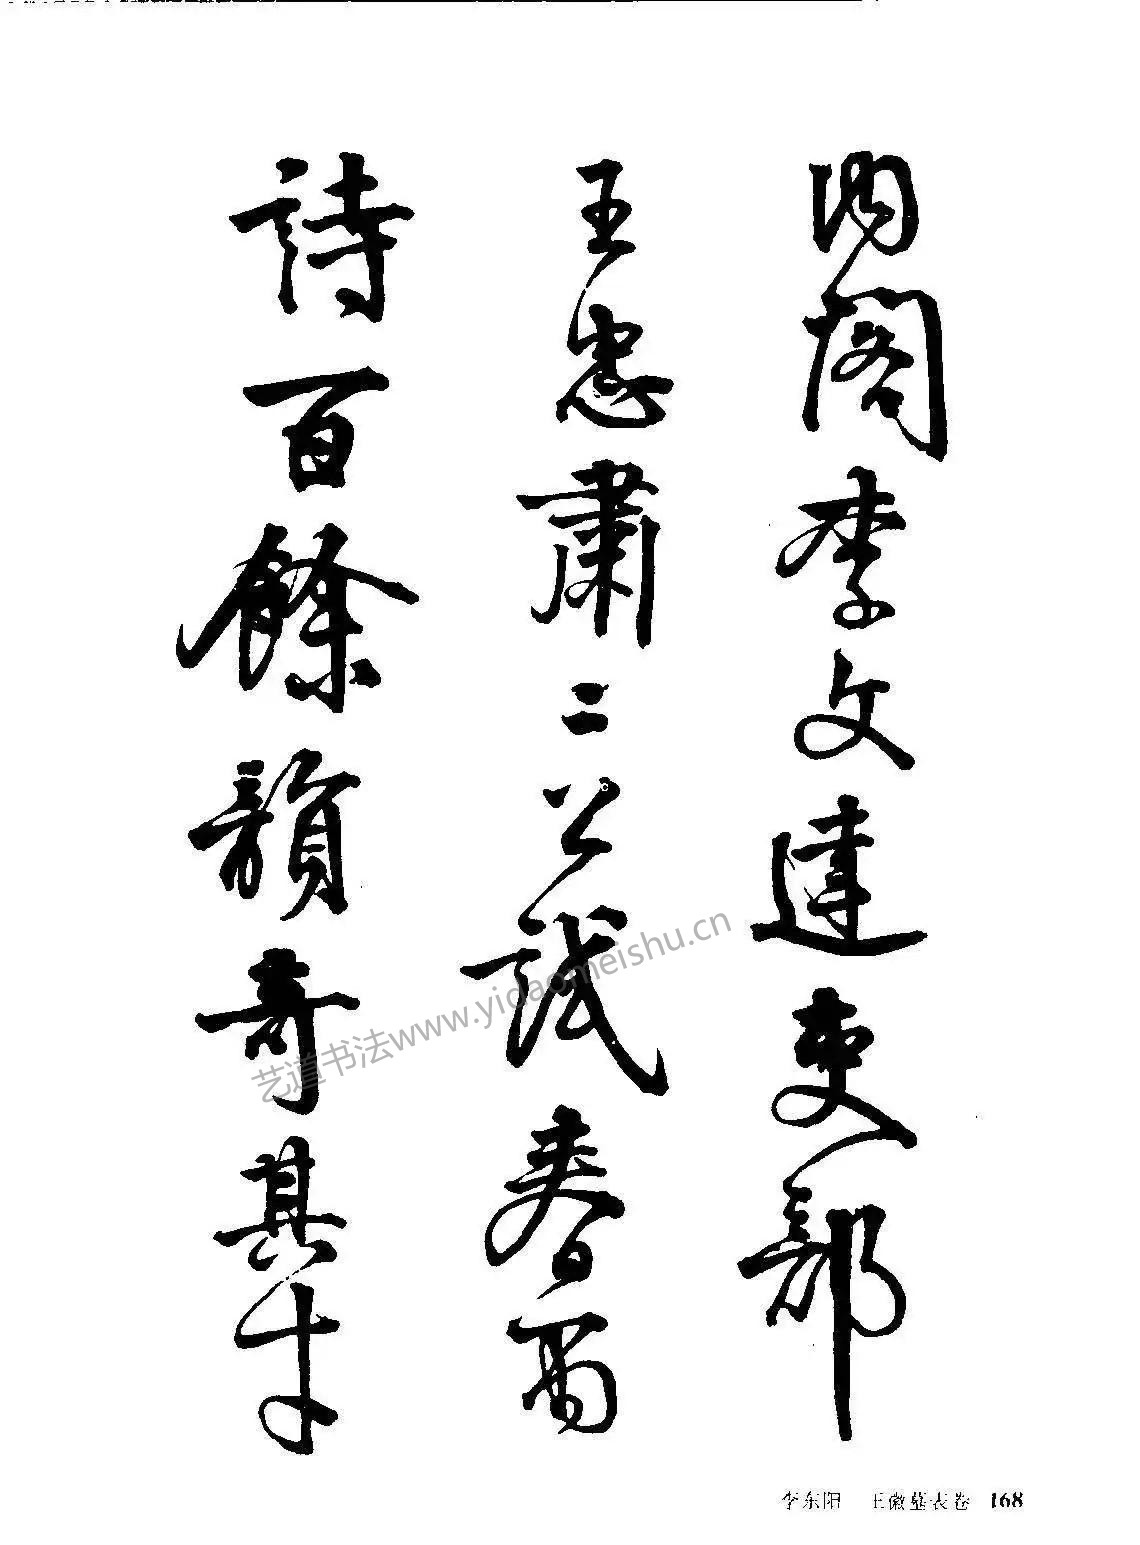 內閣李文達吏部
王忠肅二公試春雨
詩百餘韻奇其才
艺道书法www.yidaomeishu.cn
李东阳 王徽墓表卷 168